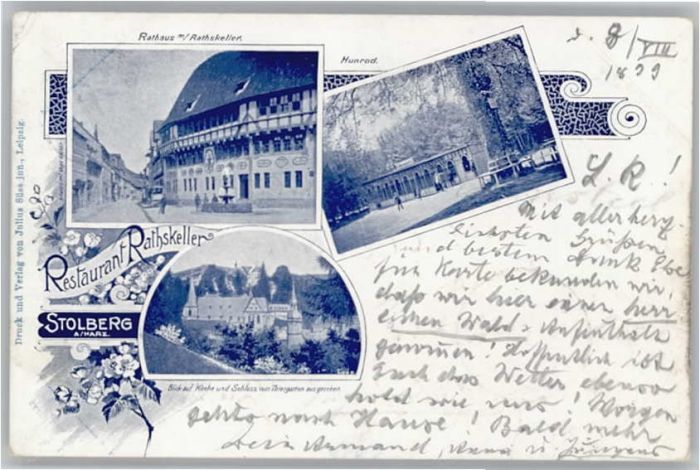 Rathaus m/ Rathskeller.
Hunrod.
d. 8/VIII
1899
Druck und Verlag von Julius Süss jun., Leipzig.
Restaurant Rathskeller
STOLBERG
A/HARZ.
Blick auf Kirche und Schloss vom Thiergarten aus gesehen.
L. R!
Mit allerherz-
lichsten Grüßen
und bestem Dank
für Karte bekunden wir,
daß wir hier einen herr
lichen Wald-Aufenthalt
gewonnen! Hoffentlich ist
Euch das Wetter ebenso
hold wie uns! Morgen
gehts nach Hause! Bald mehr
Dein Armand, Anna u. Jungens